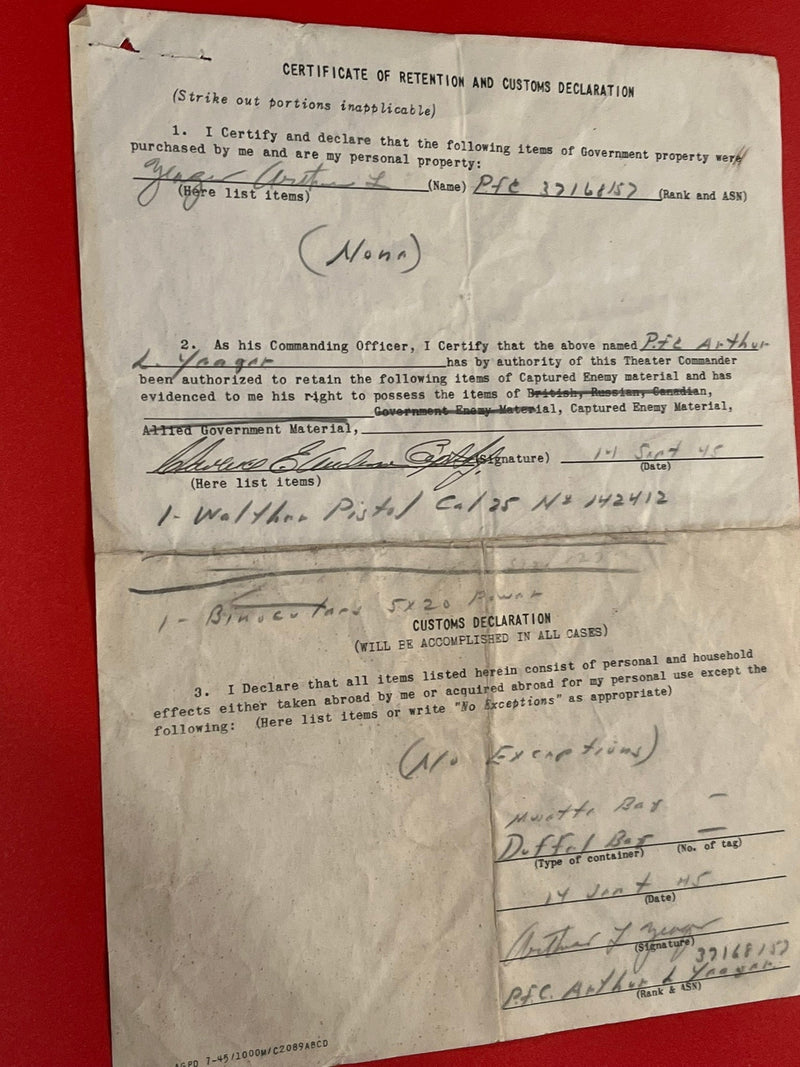 CERTIFICATE OF RETENTION AND CUSTOMS DECLARATION
(Strike out portions inapplicable)
1. I Certify and declare that the following items of Government property were
purchased by me and are my personal property:
Yeager Arthur L (Name) Pfc 37168157 (Rank and ASN)
(Here list items)
(None)
2. As his Commanding Officer, I Certify that the above named Pfc Arthur
L. Yeager has by authority of this Theater Commander
been authorized to retain the following items of Captured Enemy material and has
evidenced to me his right to possess the items of British, Russian, Canadian,
Government Enemy Material, Captured Enemy Material,
Allied Government Material,
(Signature) 14 Sept 45
(Here list items) (Date)
1- Walther Pistol Cal 25 No 142412
1- Binoculars 5x20 Power
CUSTOMS DECLARATION
(WILL BE ACCOMPLISHED IN ALL CASES)
3. I Declare that all items listed herein consist of personal and household
effects either taken abroad by me or acquired abroad for my personal use except the
following: (Here list items or write "No Exceptions" as appropriate)
(No Exceptions)
Bag —
Duffel Bag —
(Type of container) (No. of tag)
14 Sept 45
(Date)
Arthur L Yeager
(Signature) 37168157
Pfc. Arthur L Yeager
(Rank & ASN)
AGPD 7-45/1000M/C2089ABCD